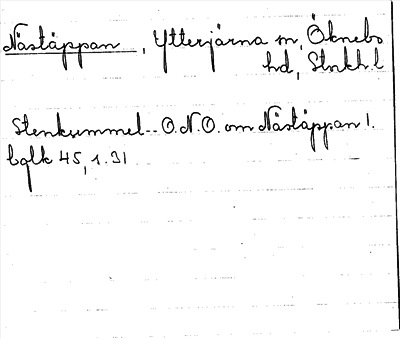 Nästäppan, Ytterjärna sn, Öknebo
hd, Stockh.l
Stenkummel .. O.N.O. om Nästäppan l.
bglk 45, 1.31